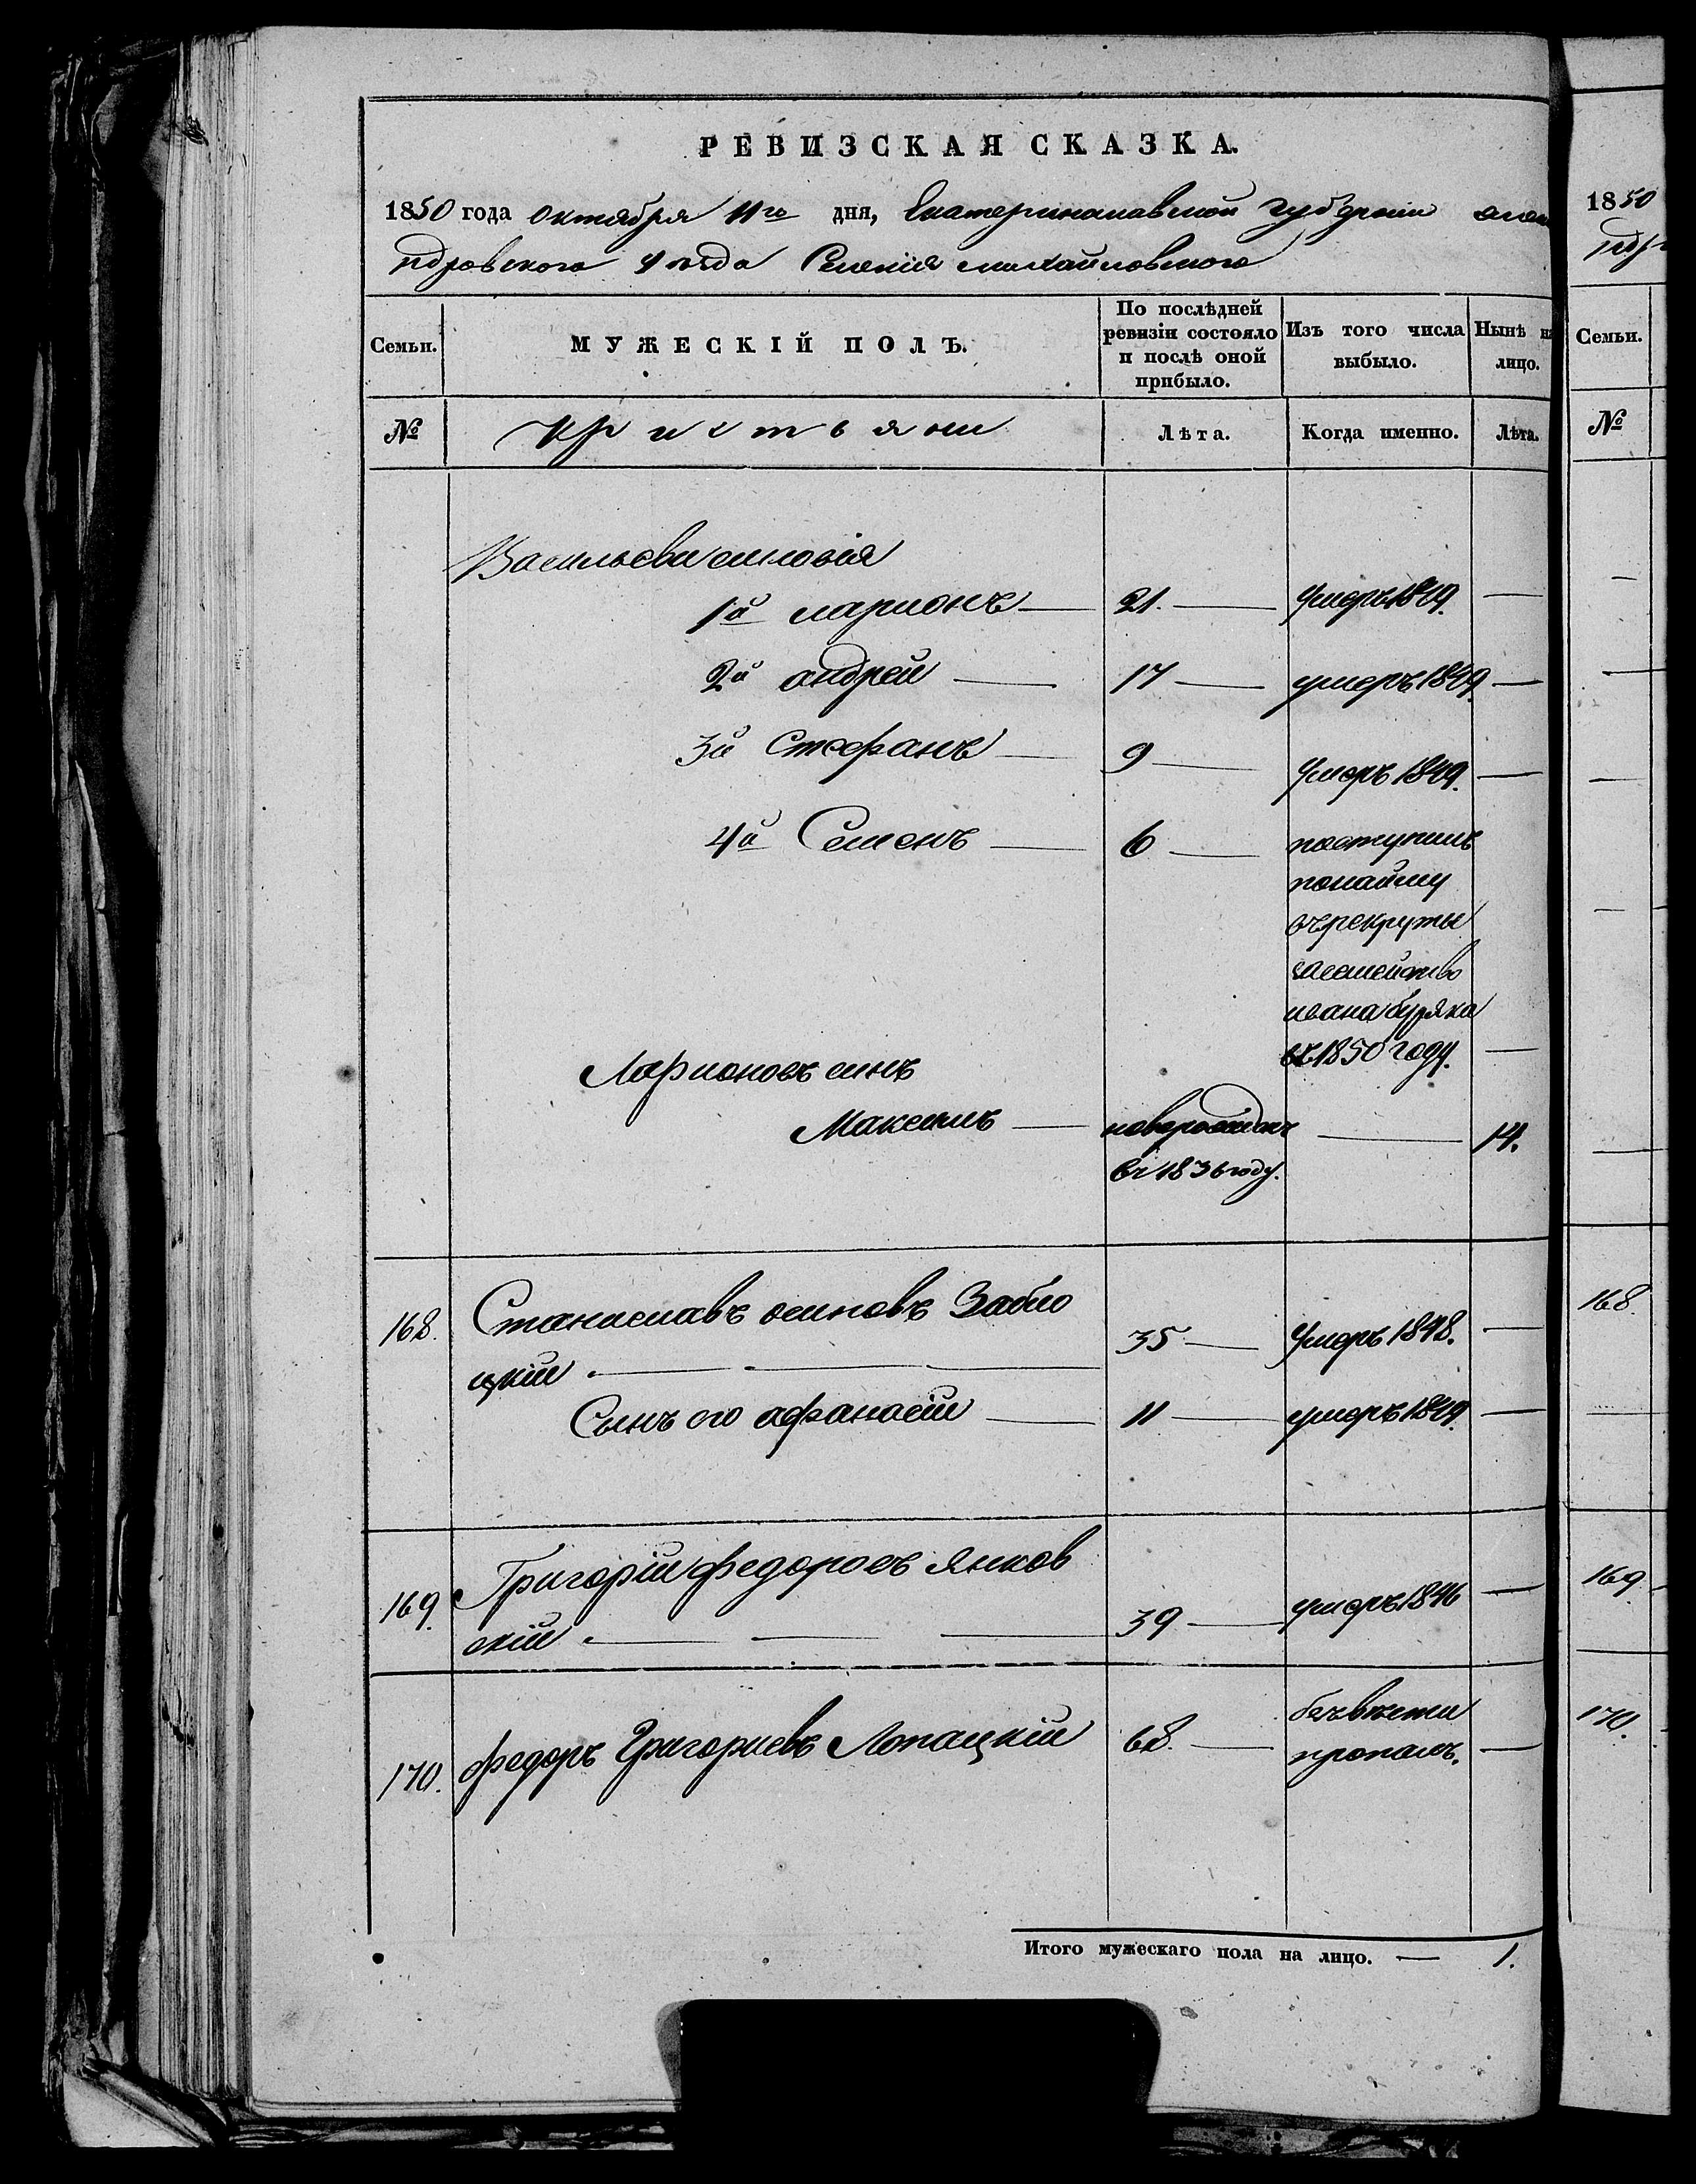 РЕВИЗСКАЯ СКАЗКА.
1850 года октября 11го дня, Екатеринославской губерніи алекса
ндровского уѣзда Селенія михайловского
Семьи. МУЖЕСКІЙ ПОЛЪ. По послѣдней ревизіи состояло и послѣ оной прибыло. Изъ того числа выбыло. Нынѣ на лицо.
№ кристьяни Лѣта. Когда именно. Лѣта.
Васильеви синовія
1й ларионъ — 21. — Умеръ 1849. —
2й андрей — 17 — умеръ 1849 —
3й Стефанъ — 9 — Умеръ 1849. —
4й Семенъ — 6 — поступилъ
понайму
върекруты
засемейство
ивана буряка
въ 1850 году. —
Ларионовъ синъ
Максимъ — новорожденъ — 14.
въ 1836 году.
168. Станиславъ осиповъ Забло
цкій — 35 — Умеръ 1848. —
Сынъ его афанасій — 11 — умеръ 1849. —
169. Григорій федоровъ янков
скій — 39 — умеръ 1846 —
170. федоръ Григориевъ Лопацкій 68. — безъвѣсти
пропалъ. —
Итого мужескаго пола на лицо. — 1.
1850
ндр
Семьи.
№
168.
169.
170.